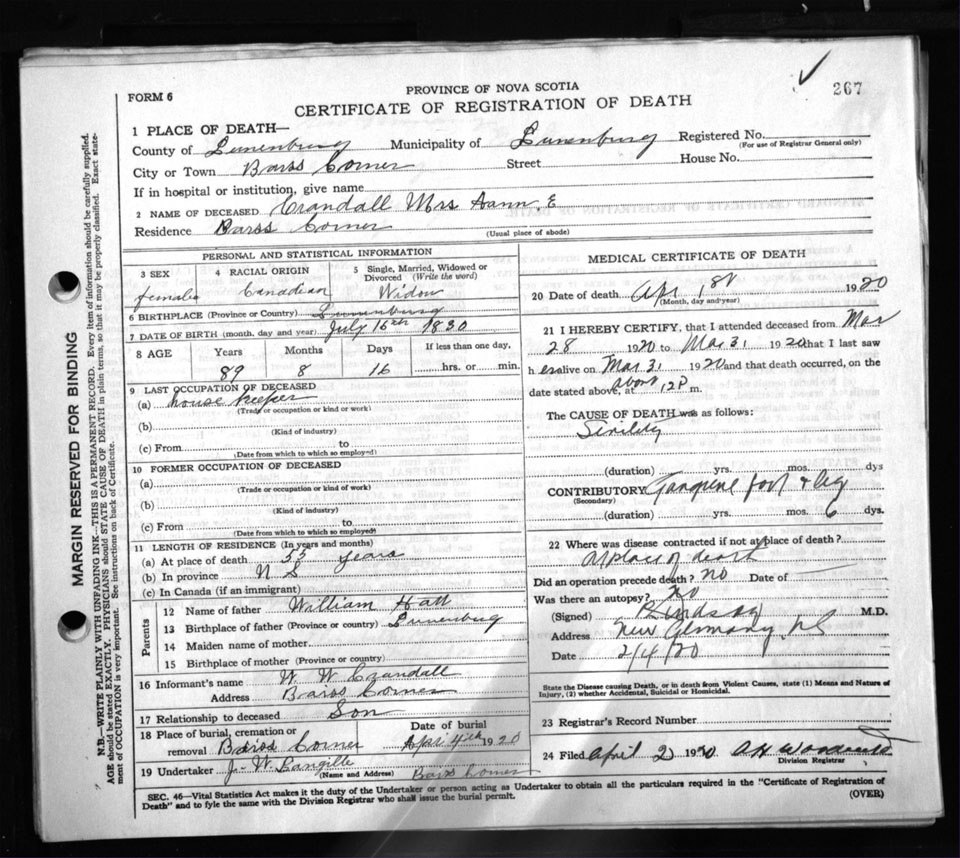 267
FORM 6
PROVINCE OF NOVA SCOTIA
CERTIFICATE OF REGISTRATION OF DEATH
1 PLACE OF DEATH—
County of Lunenburg Municipality of Lunenburg Registered No.
(For use of Registrar General only)
City or Town Barss Corner Street House No.
If in hospital or institution, give name
2 NAME OF DECEASED Crandall Mrs E
Residence Barss Corner (Usual place of abode)
PERSONAL AND STATISTICAL INFORMATION
3 SEX 4 RACIAL ORIGIN 5 Single, Married, Widowed or Divorced (Write the word)
female Canadian Widow
6 BIRTHPLACE (Province or Country) Lunenburg
7 DATE OF BIRTH (month, day and year) July 16th 1830
8 AGE Years Months Days If less than one day,
89 8 16 hrs. or min.
9 LAST OCCUPATION OF DECEASED
(a) house keeper
(Trade or occupation or kind of work)
(b)
(Kind of industry)
(c) From to
(Date from which to which so employed)
10 FORMER OCCUPATION OF DECEASED
(a)
(Trade or occupation or kind of work)
(b)
(Kind of industry)
(c) From to
(Date from which to which so employed)
11 LENGTH OF RESIDENCE (In years and months)
(a) At place of death years
(b) In province N S
(c) In Canada (if an immigrant)
Parents
12 Name of father William
13 Birthplace of father (Province or country) Lunenburg
14 Maiden name of mother
15 Birthplace of mother (Province or country)
16 Informant's name W W Crandall
Address Barss Corner
17 Relationship to deceased Son
18 Place of burial, cremation or Date of burial
removal Barss Corner Apr 4th 1920
19 Undertaker J. W. Langille Barss Corner
(Name and Address)
MEDICAL CERTIFICATE OF DEATH
20 Date of death Apr 1st 1920
(Month, day and year)
21 I HEREBY CERTIFY, that I attended deceased from Mar
28 1920 to Mar 31 1920 that I last saw
her alive on Mar 31 1920 and that death occurred, on the
date stated above, at about 12 P m.
The CAUSE OF DEATH was as follows:
Senility
(duration) yrs. mos. dys
CONTRIBUTORY Gangrene foot & leg
(Secondary)
(duration) yrs. mos. 6 dys.
22 Where was disease contracted if not at place of death?
At place of death
Did an operation precede death? no Date of
Was there an autopsy? no
(Signed) M.D.
Address New Germany N S
Date 2/4/20
State the Disease causing Death, or in death from Violent Causes, state (1) Means and Nature of
Injury, (2) whether Accidental, Suicidal or Homicidal.
23 Registrar's Record Number
24 Filed April 2 1920
Division Registrar
SEC. 46—Vital Statistics Act makes it the duty of the Undertaker or person acting as Undertaker to obtain all the particulars required in the "Certificate of Registration of
Death" and to fyle the same with the Division Registrar who shall issue the burial permit.
(OVER)
MARGIN RESERVED FOR BINDING
N.B.—WRITE PLAINLY WITH UNFADING INK—THIS IS A PERMANENT RECORD. Every item of information should be carefully supplied.
AGE should be stated EXACTLY. PHYSICIANS should STATE CAUSE OF DEATH in plain terms, so that it may be properly classified. Exact state-
ment of OCCUPATION is very important. See instructions on back of Certificate.